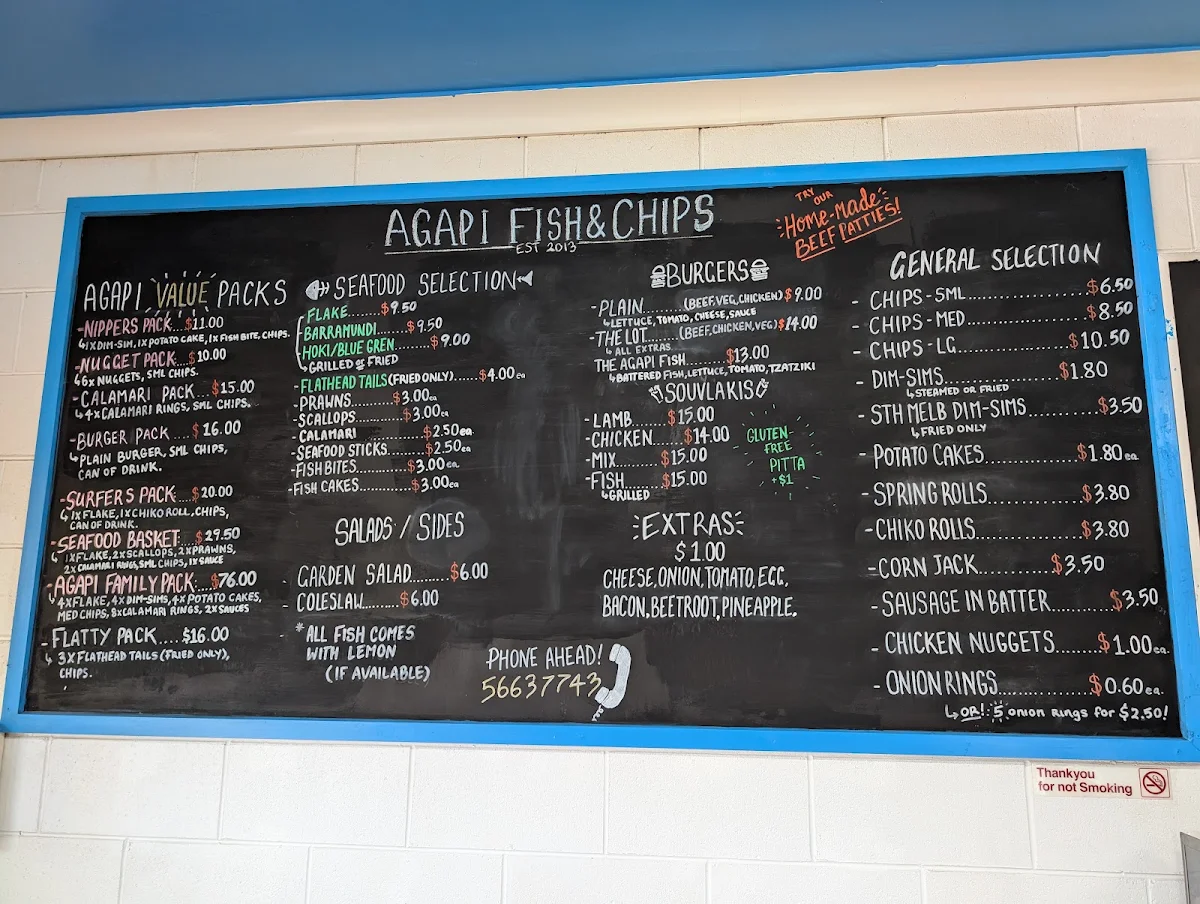 AGAPI FISH&CHIPS
EST 2013
TRY OUR
Home-made
BEEF PATTIES!
AGAPI VALUE PACKS
-NIPPERS PACK...$11.00
↳1XDIM-SIM, 1X POTATO CAKE, 1X FISH BITE, CHIPS.
-NUGGET PACK...$10.00
↳6X NUGGETS, SML CHIPS.
-CALAMARI PACK...$15.00
↳4XCALAMARI RINGS, SML CHIPS.
-BURGER PACK...$16.00
↳PLAIN BURGER, SML CHIPS,
CAN OF DRINK.
-SURFERS PACK...$20.00
↳1XFLAKE, 1XCHIKO ROLL, CHIPS,
CAN OF DRINK.
-SEAFOOD BASKET...$29.50
↳1XFLAKE, 2XSCALLOPS, 2XPRAWNS,
2XCALAMARI RINGS, SML CHIPS, 1XSAUCE
-AGAPI FAMILY PACK...$76.00
↳4XFLAKE, 4XDIM-SIMS, 4XPOTATO CAKES,
MED CHIPS, 8XCALAMARI RINGS, 2XSAUCES
-FLATTY PACK....$16.00
↳3XFLATHEAD TAILS (FRIED ONLY),
CHIPS.
SEAFOOD SELECTION
FLAKE......$9.50
BARRAMUNDI......$9.50
HOKI/BLUE GREN......$9.00
↳GRILLED or FRIED
-FLATHEAD TAILS (FRIED ONLY)......$4.00ea
-PRAWNS......$3.00ea
-SCALLOPS......$3.00ea
-CALAMARI......$2.50ea
-SEAFOOD STICKS......$2.50ea
-FISH BITES......$3.00ea
-FISH CAKES......$3.00ea
SALADS / SIDES
- GARDEN SALAD.........$6.00
- COLESLAW........$6.00
*ALL FISH COMES
WITH LEMON
(IF AVAILABLE)
PHONE AHEAD!
56637743
BURGERS
-PLAIN......(BEEF,VEG,CHICKEN) $9.00
↳LETTUCE, TOMATO, CHEESE, SAUCE
-THE LOT......(BEEF,CHICKEN,VEG) $14.00
↳ALL EXTRAS
THE AGAPI FISH......$13.00
↳BATTERED FISH, LETTUCE, TOMATO, TZATZIKI
SOUVLAKIS
-LAMB......$15.00
-CHICKEN......$14.00
-MIX......$15.00
-FISH......$15.00
↳GRILLED
GLUTEN-
FREE
PITTA
+$1
EXTRAS
$1.00
CHEESE, ONION, TOMATO, EGG,
BACON, BEETROOT, PINEAPPLE.
GENERAL SELECTION
- CHIPS-SML...............$6.50
- CHIPS-MED...............$8.50
- CHIPS-LG...............$10.50
- DIM-SIMS...............$1.80
↳STEAMED OR FRIED
-STH MELB DIM-SIMS.........$3.50
↳FRIED ONLY
-POTATO CAKES............$1.80ea.
-SPRING ROLLS............$3.80
-CHIKO ROLLS............$3.80
-CORN JACK............$3.50
-SAUSAGE IN BATTER.........$3.50
- CHICKEN NUGGETS.........$1.00ea.
- ONION RINGS............$0.60ea.
↳OR! : 5 onion rings for $2.50!
Thankyou
for not Smoking